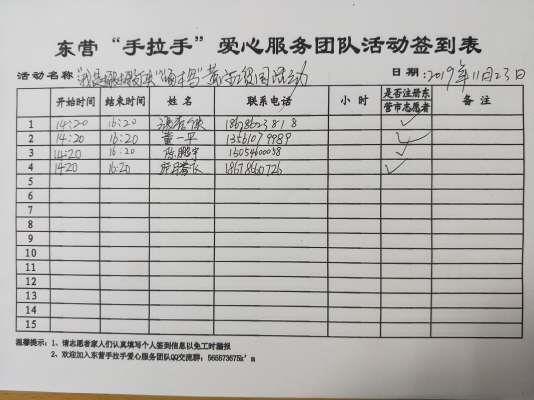 东营“手拉手”爱心服务团队活动签到表
活动名称 日期:2019年11月23日
开始时间 结束时间 姓名 联系电话 小时 是否注册东营市志愿者 备注
1 14:20 16:20
2 14:20 16:20 董一平 13561079989
3 14:20 16:20 陈鹏宇
4 14:20 16:20 18678660726
5
6
7
8
9
10
11
12
13
14
15
温馨提示:1、请志愿者家人们认真填写个人签到信息以免工时漏报
2、欢迎加入东营手拉手爱心服务团队QQ交流群: